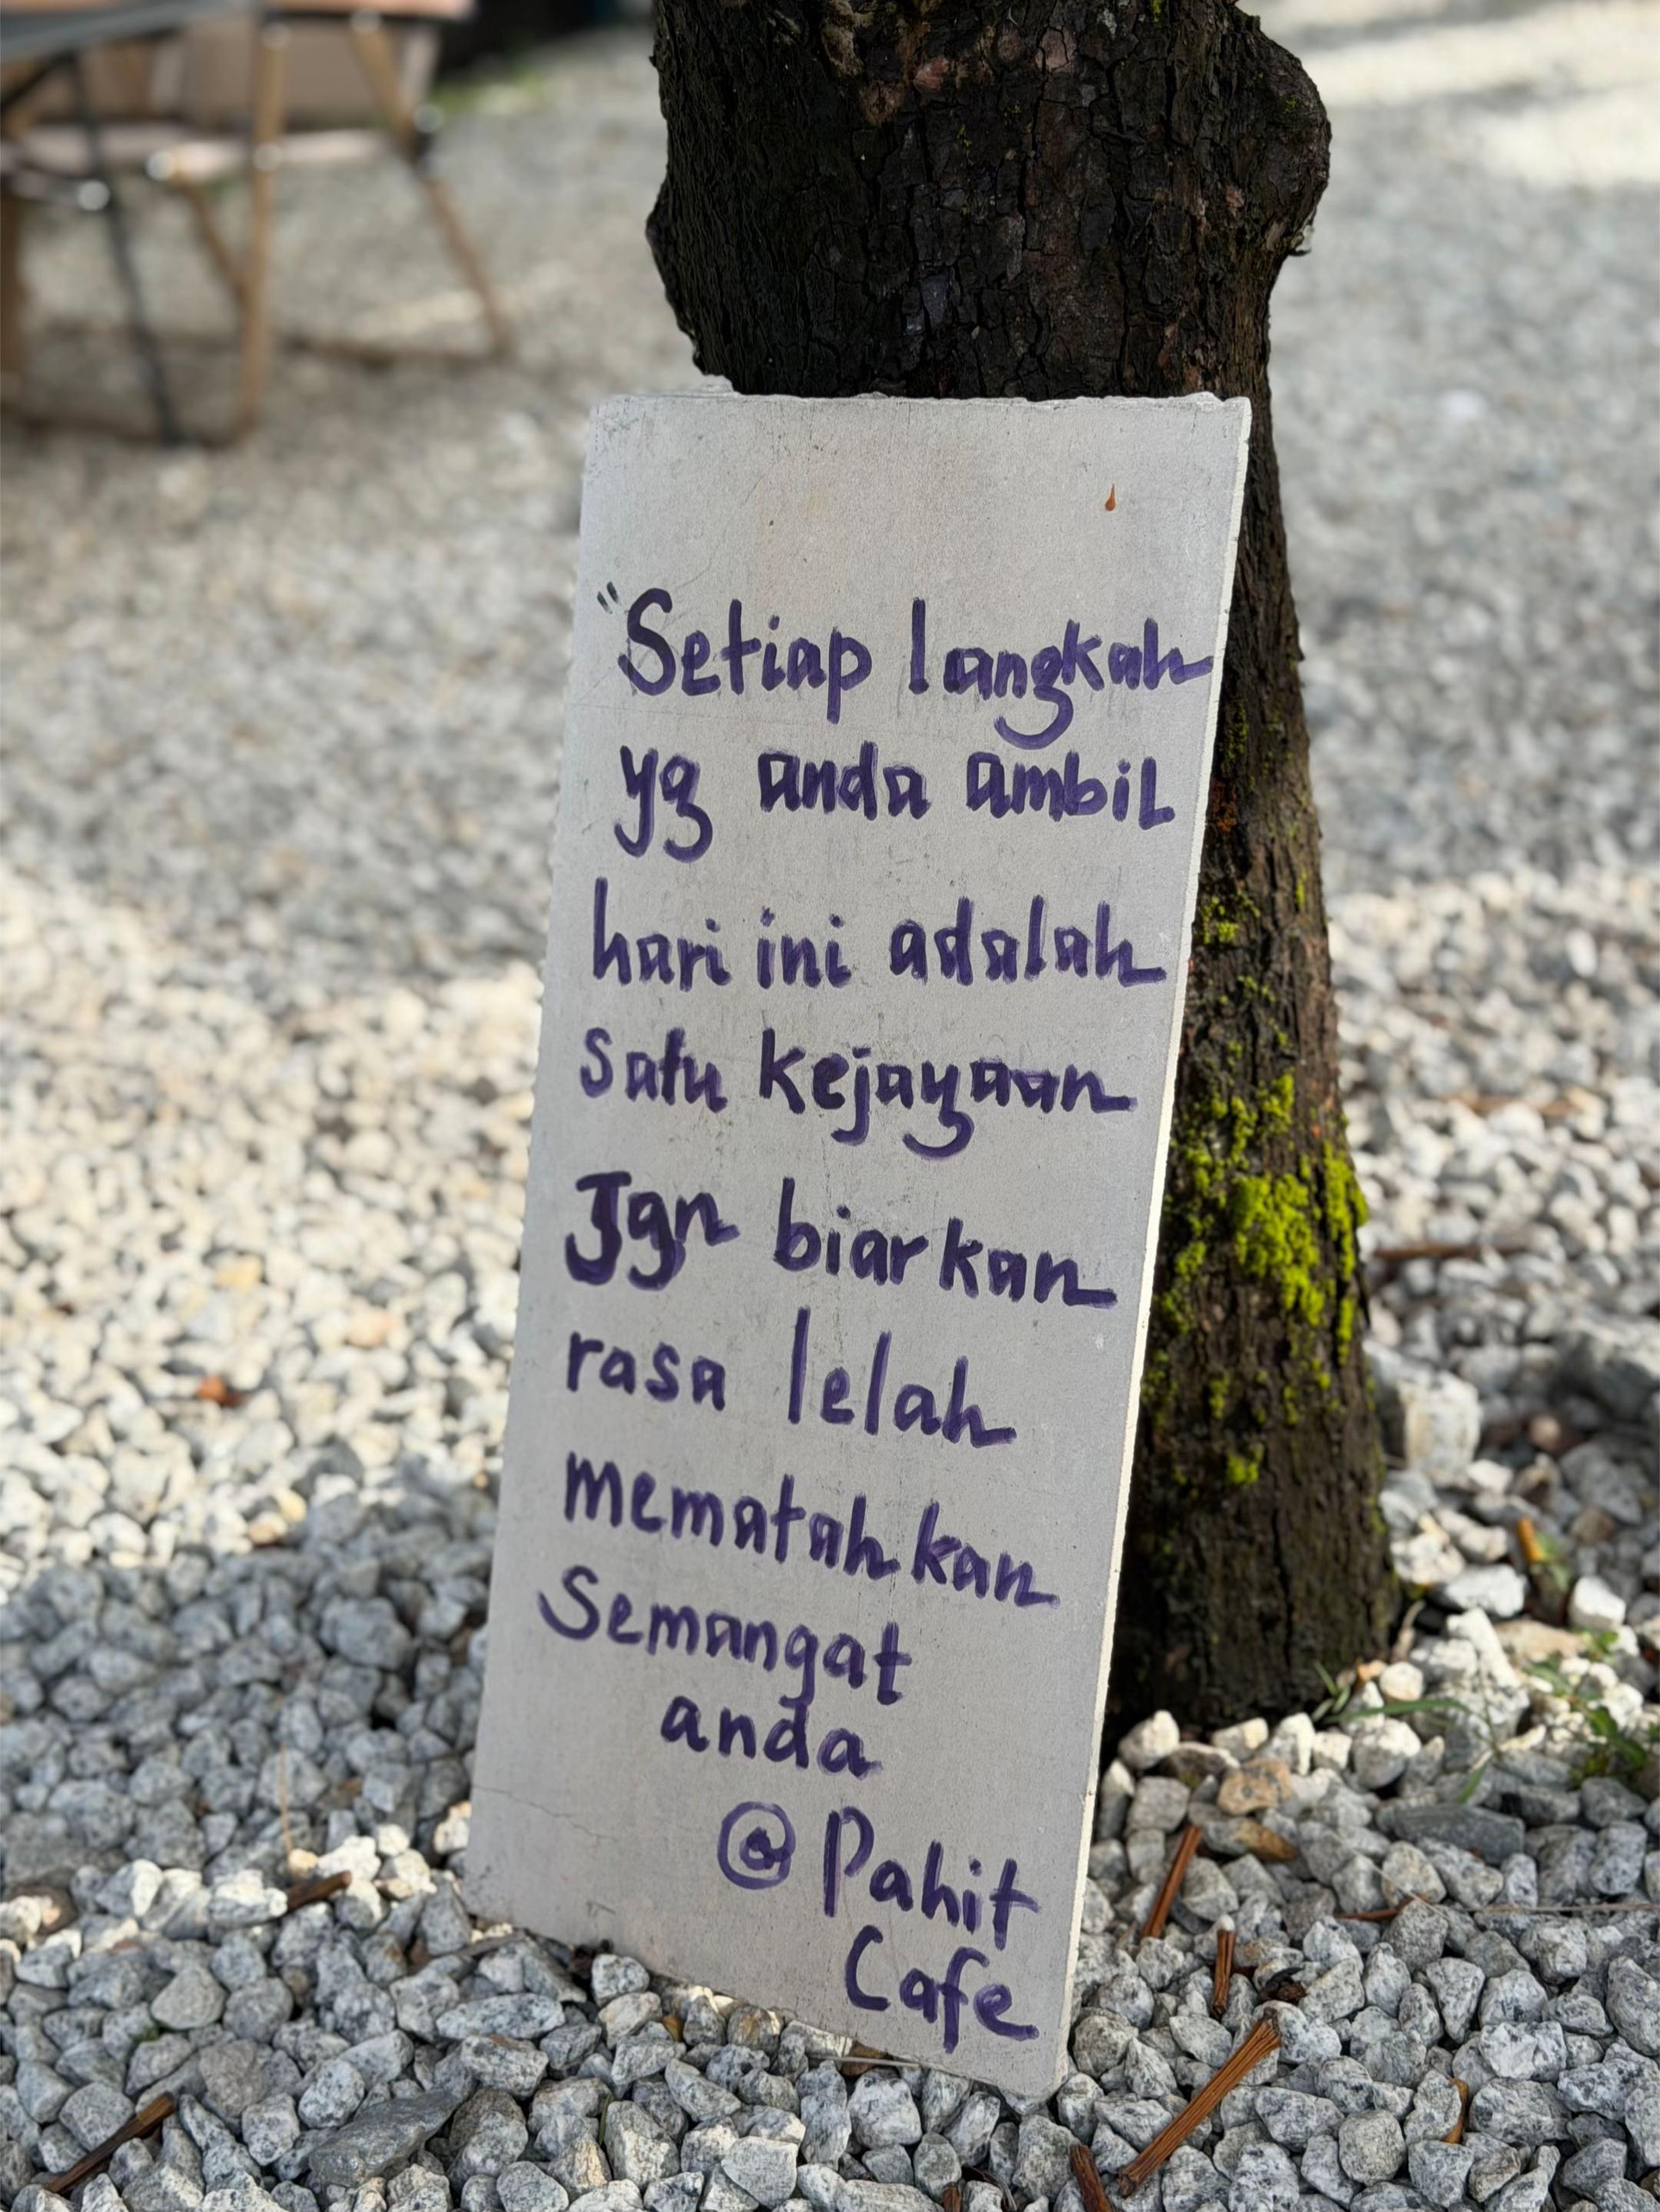 "Setiap langkah
yg anda ambil
hari ini adalah
satu kejayaan
Jgn biarkan
rasa lelah
mematahkan
Semangat
anda
@ Pahit
Cafe